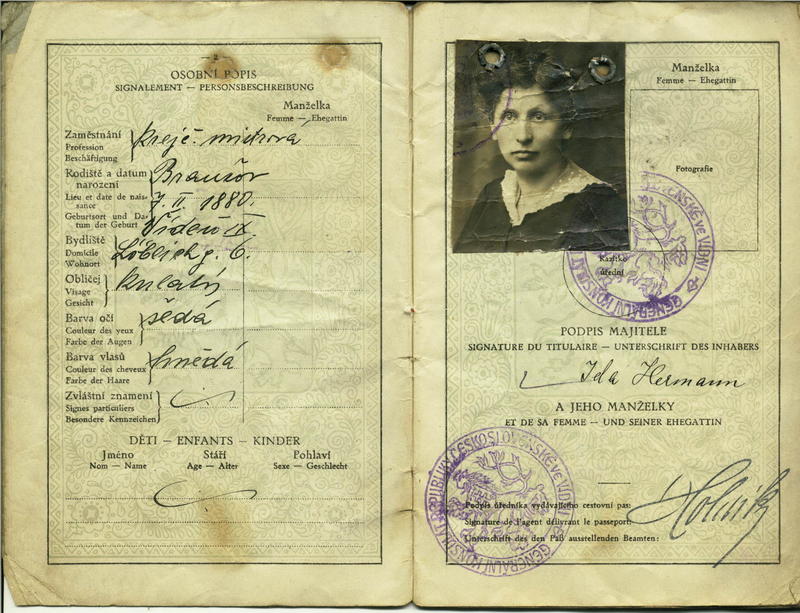 — 2 —
OSOBNÍ POPIS
SIGNALEMENT — PERSONSBESCHREIBUNG
Manželka
Femme — Ehegattin
Zaměstnání
Profession
Beschäftigung
krejč. mistrova
Rodiště a datum
narození
Lieu et date de nais-
sance
Geburtsort und Da-
tum der Geburt
7. II. 1880.
Bydliště
Domicile
Wohnort
Vídeň IX.
Löblich g. 6.
Obličej
Visage
Gesicht
kulatý
Barva očí
Couleur des yeux
Farbe der Augen
šedá
Barva vlasů
Couleur des cheveux
Farbe der Haare
hnědá
Zvláštní znamení
Signes particuliers
Besondere Kennzeichen
DĚTI — ENFANTS — KINDER
Jméno Stáří Pohlaví
Nom — Name Age — Alter Sexe — Geschlecht
Manželka
Femme — Ehegattin
Fotografie
Razítko
úřední
GENERÁLNÍ KONSULÁT ČESKOSLOVENSKÉ VE VÍDNI
PODPIS MAJITELE
SIGNATURE DU TITULAIRE — UNTERSCHRIFT DES INHABERS
Ida Hermann
A JEHO MANŽELKY
ET DE SA FEMME — UND SEINER EHEGATTIN
GENERÁLNÍ KONSULÁT REPUBLIKY ČESKOSLOVENSKÉ VE VÍDNI
Podpis úředníka vydávajícího cestovní pas:
Signature de l'agent délivrant le passeport:
Unterschrift des den Paß ausstellenden Beamten: